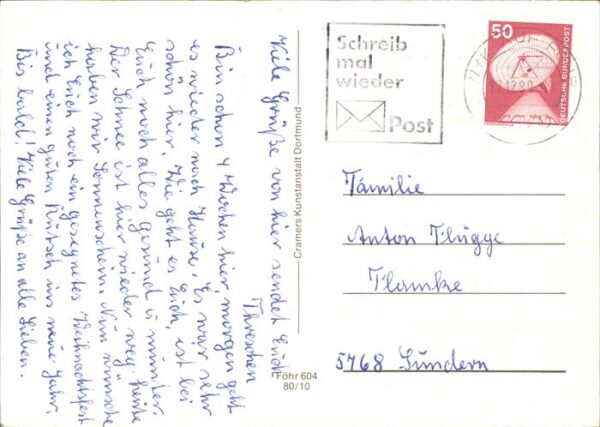 Viele Grüße von hier sendet Euch
Threschen
Bin schon 4 Wochen hier, morgen geht
es wieder nach Hause. Es war sehr
schön hier. Wie geht es Euch, ist bei
Euch noch alles gesund u. munter.
Der Schnee ist hier wieder weg, heute
haben wir Sonnenschein. Nun wünsche
ich Euch noch ein gesegnetes Weihnachtsfest
und einen guten Rutsch ins neue Jahr.
Bis bald! Viele Grüße an alle Lieben.
Cramers Kunstanstalt Dortmund
Föhr 604
80/10
Schreib
mal
wieder
Post
50
DEUTSCHE BUNDESPOST
Familie
Anton Flügge
Flamke
5768 Sundern